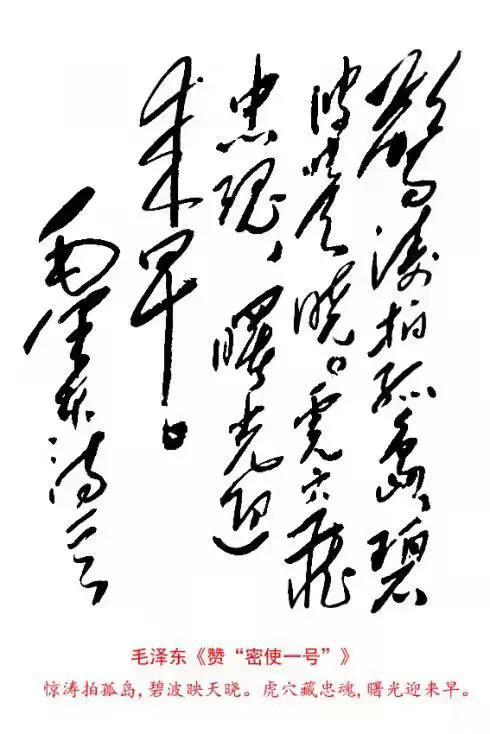 驚涛拍孤島,碧
波映天晓。虎穴藏
忠魂,曙光迎
来早。
毛泽东诗
毛泽东《赞“密使一号”》
惊涛拍孤岛,碧波映天晓。虎穴藏忠魂,曙光迎来早。